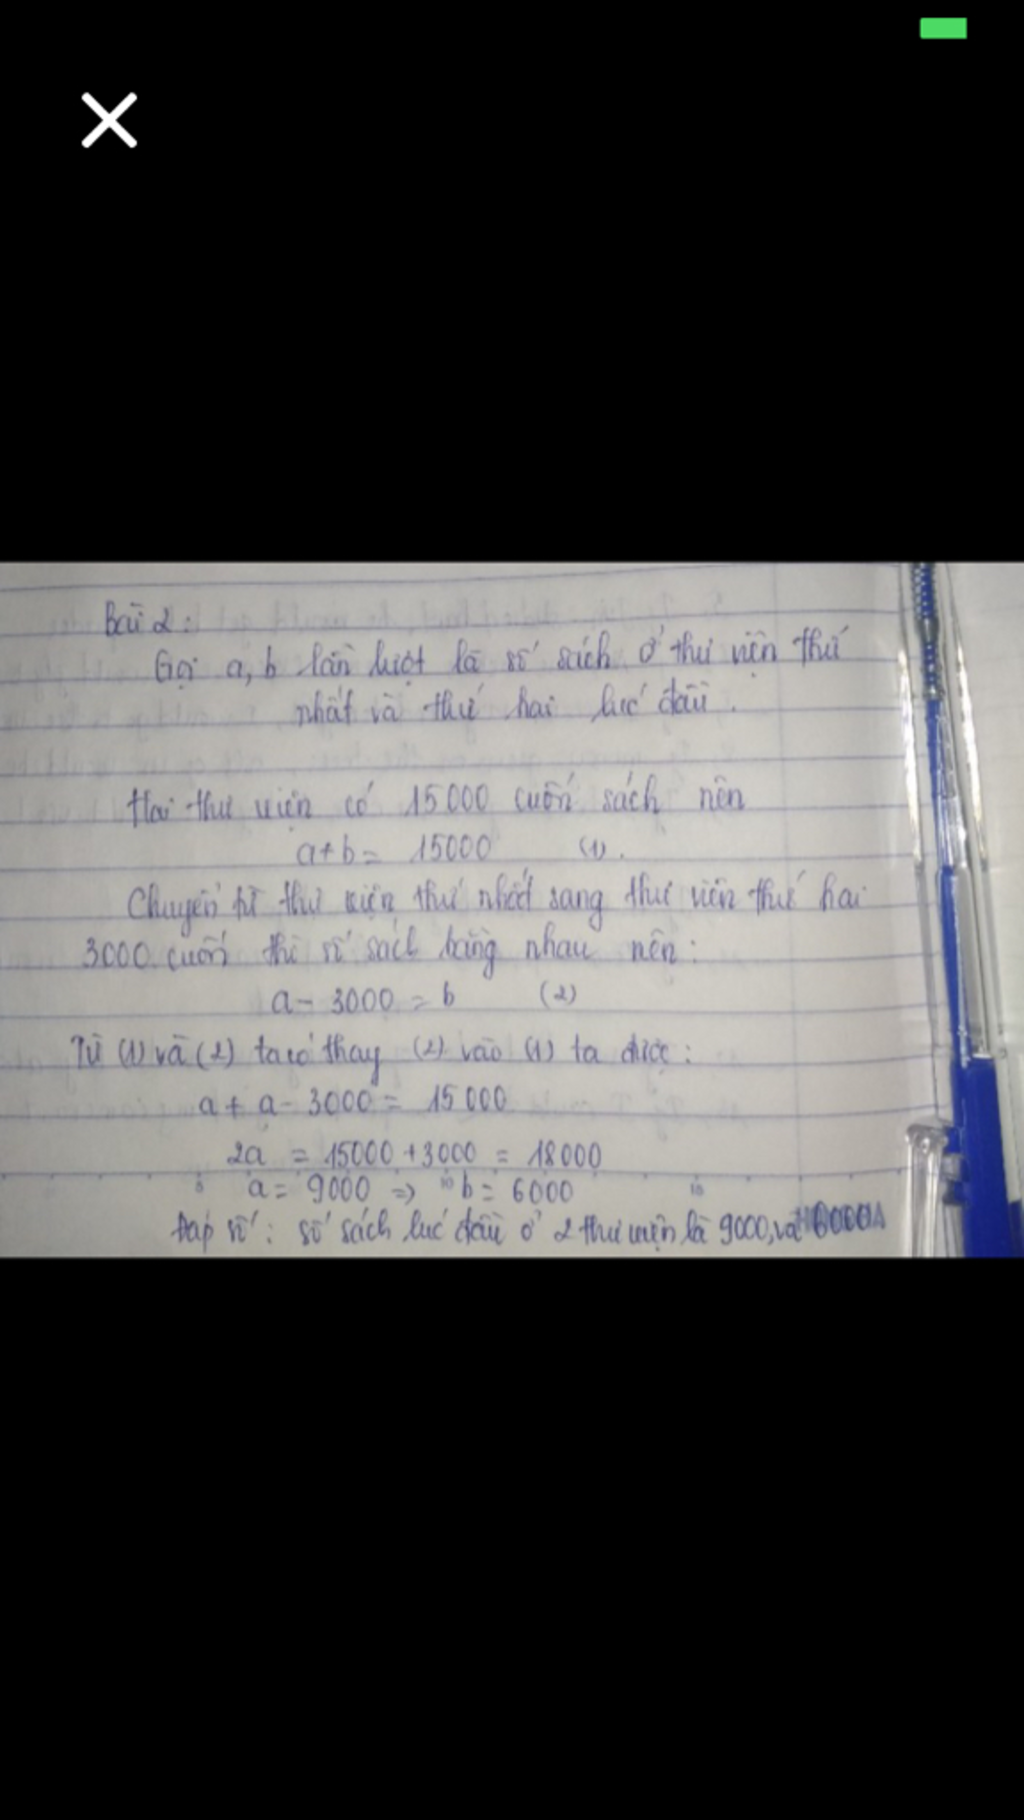 Bài 2:
Gọi a, b lần lượt là số sách ở thư viện thứ
nhất và thứ hai lúc đầu.
Hai thư viện có 15000 cuốn sách nên
a+b = 15000 (1).
Chuyển từ thư viện thứ nhất sang thư viện thứ hai
3000 cuốn thì số sách bằng nhau nên:
a - 3000 = b (2)
Từ (1) và (2) ta có thay (2) vào (1) ta được:
a + a - 3000 = 15000
2a = 15000 + 3000 = 18000
a = 9000 => b = 6000
Đáp số: số sách lúc đầu ở 2 thư viện là 9000, và 6000